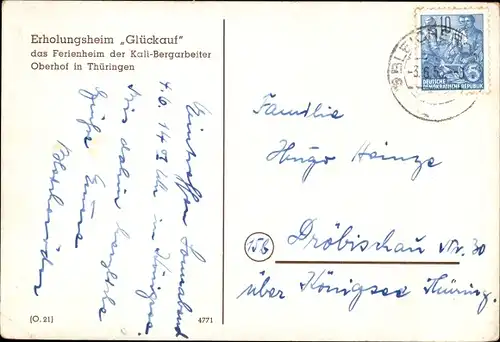 Erholungsheim „Glückauf"
das Ferienheim der Kali-Bergarbeiter
Oberhof in Thüringen
Eintreffen Sonnabend
4.6. 14 Uhr in Königsee.
Bis dahin herzliche
Grüße Eure
(O. 21)
4771
10
5
DEUTSCHE
DEMOKRATISCHE REPUBLIK
Familie
Hugo Heinze
(15b)
Dröbischau Nr. 30
über Königsee Thüring.